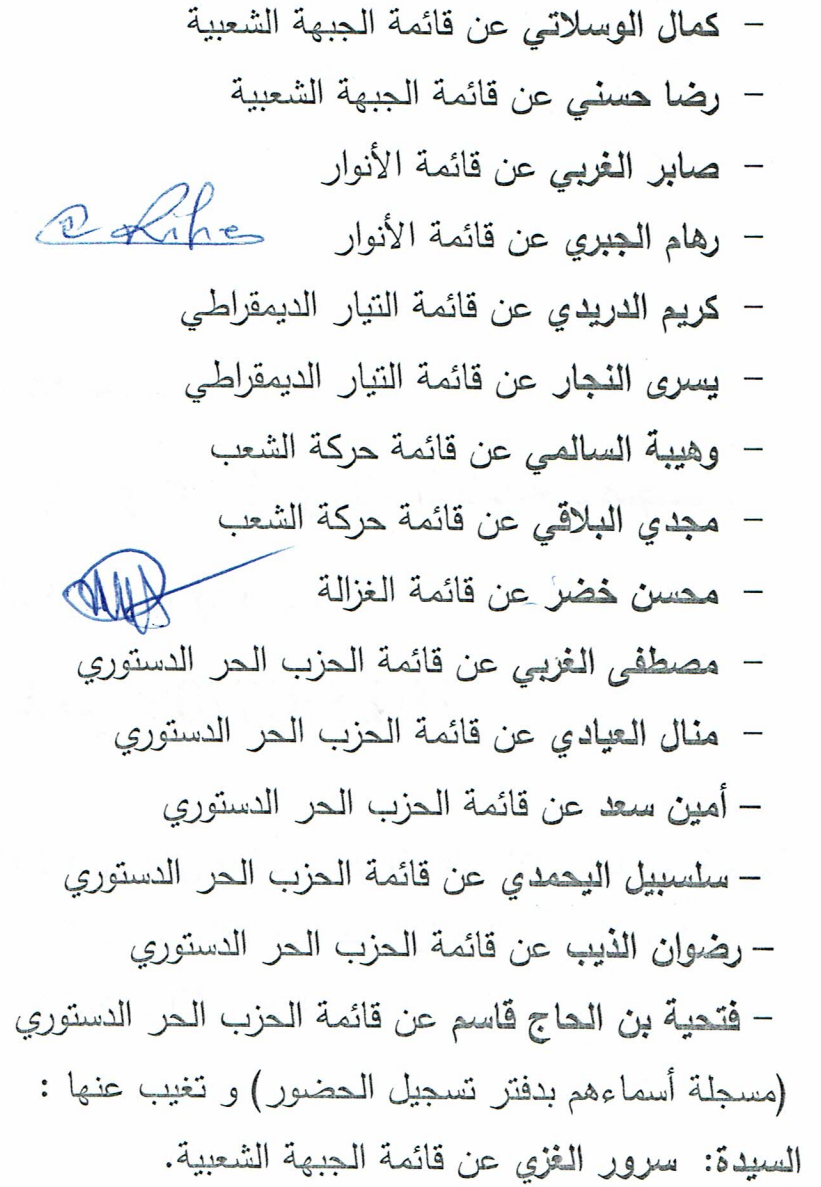 - كمال الوسلاتي عن قائمة الجبهة الشعبية
- رضا حسني عن قائمة الجبهة الشعبية
- صابر الغربي عن قائمة الأنوار
- رهام الجبري عن قائمة الأنوار
- كريم الدريدي عن قائمة التيار الديمقراطي
- يسرى النجار عن قائمة التيار الديمقراطي
- وهيبة السالمي عن قائمة حركة الشعب
- مجدي البلاقي عن قائمة حركة الشعب
- محسن خضر عن قائمة الغزالة
- مصطفى الغربي عن قائمة الحزب الحر الدستوري
- منال العيادي عن قائمة الحزب الحر الدستوري
- أمين سعد عن قائمة الحزب الحر الدستوري
- سلسبيل اليحمدي عن قائمة الحزب الحر الدستوري
- رضوان الذيب عن قائمة الحزب الحر الدستوري
- فتحية بن الحاج قاسم عن قائمة الحزب الحر الدستوري
(مسجلة أسماءهم بدفتر تسجيل الحضور) و تغيب عنها :
السيدة: سرور الغزي عن قائمة الجبهة الشعبية.